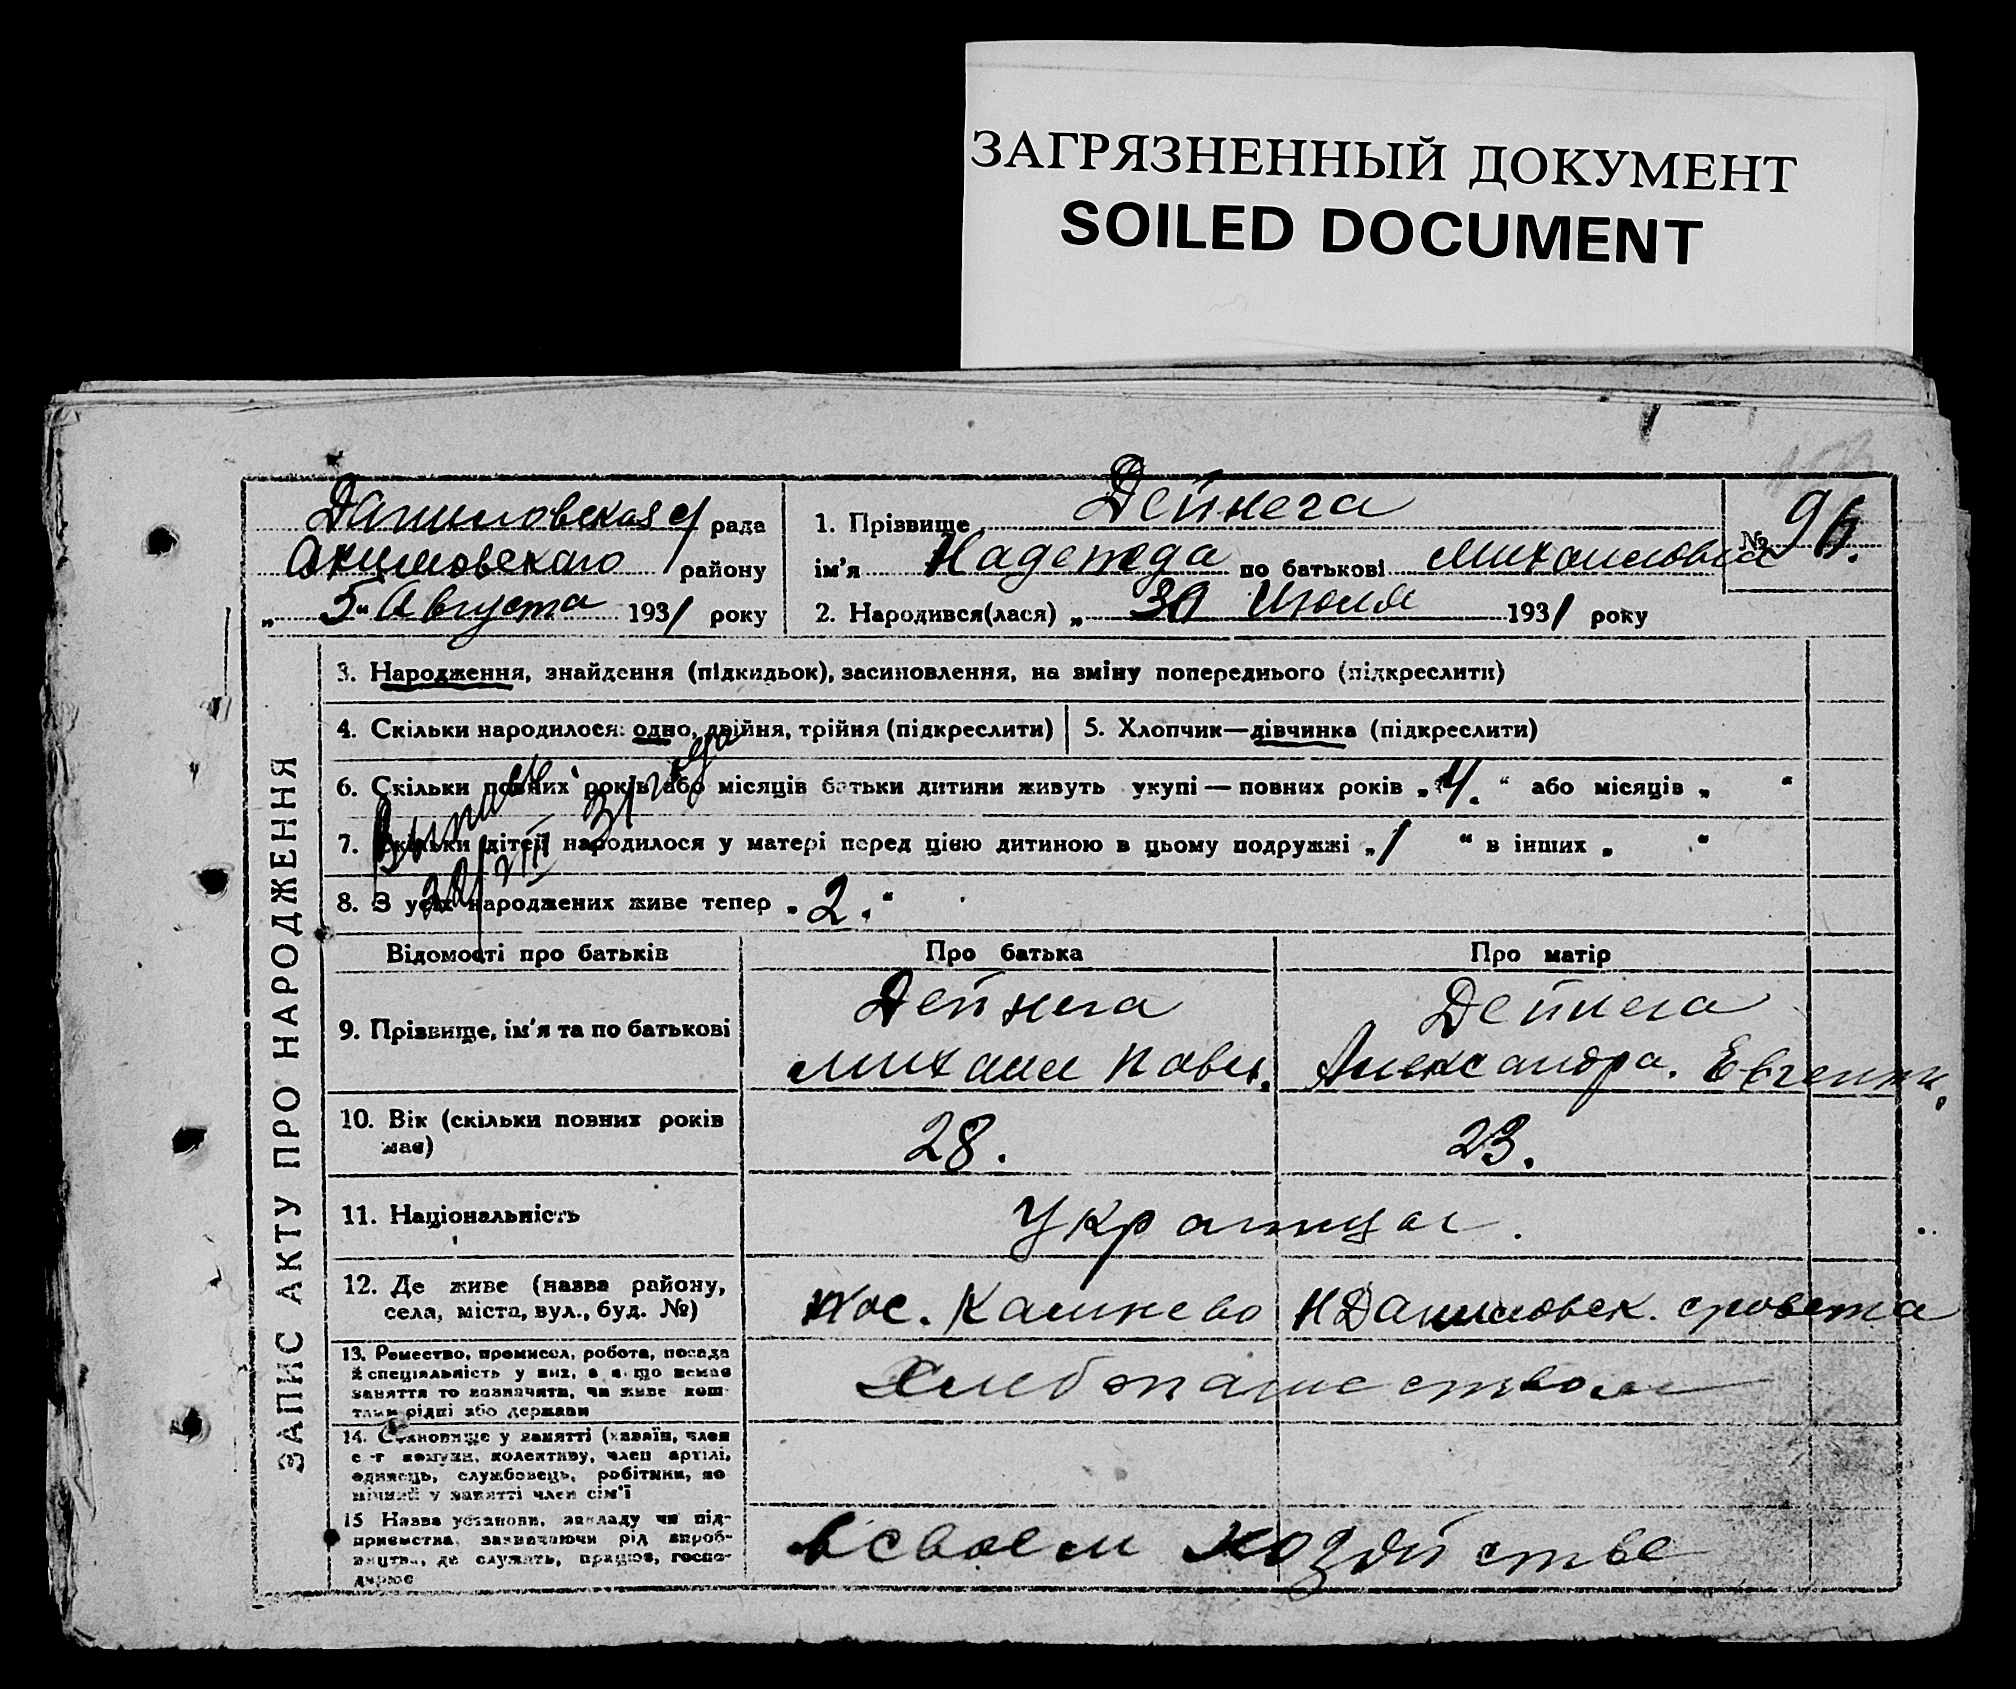 ЗАГРЯЗНЕННЫЙ ДОКУМЕНТ
SOILED DOCUMENT
Даниловская с/ рада
Акимовского району
„ 5 “ Августа 1931 року
1. Прізвище Дейнега
ім'я Надежда по батькові Михаиловна
№ 96.
2. Народився(лася) „ 30 Июля 1931 року
ЗАПИС АКТУ ПРО НАРОДЖЕННЯ
3. Народження, знайдення (підкидьок), засиновлення, на зміну попереднього (підкреслити)
4. Скільки народилося: одно, двійня, трійня (підкреслити)
5. Хлопчик—дівчинка (підкреслити)
6. Скільки повних років або місяців батьки дитини живуть укупі — повних років „ 4. “ або місяців „ “
7. Скільки дітей народилося у матері перед цією дитиною в цьому подружжі „ 1 “ в інших „ “
8. З усіх народжених живе тепер „ 2. “
31 года
Відомості про батьків
Про батька
Про матір
9. Прізвище, ім'я та по батькові
Дейнега
Михаил Павл.
Дейнега
Александра. Евгении.
10. Вік (скільки повних років
має)
28.
23.
11. Національність
Украинцы.
12. Де живе (назва району,
села, міста, вул., буд. №)
пос. Н Даниловск. с/совета
13. Ремество, промисел, робота, посада
й спеціяльність у них, а якщо немає
заняття то позначити, чи живе кош-
тами рідні або держави
Хлебопашеством
14. Становище у занятті (хазяїн, член
с-г комуни, колективу, член артілі,
одинець, службовець, робітник, по
мічний у занятті член сім'ї
15 Назва установи, закладу чи під-
приємства, зазначаючи рід вироб-
ництва, де служить, працює, госпо-
дарює
в своем хозяйстве